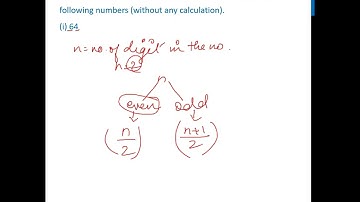 following numbers (without any calculation).
(i) 64
n = no. of digit in the no.
n = 2
n
even odd
(n/2) (n+1/2)